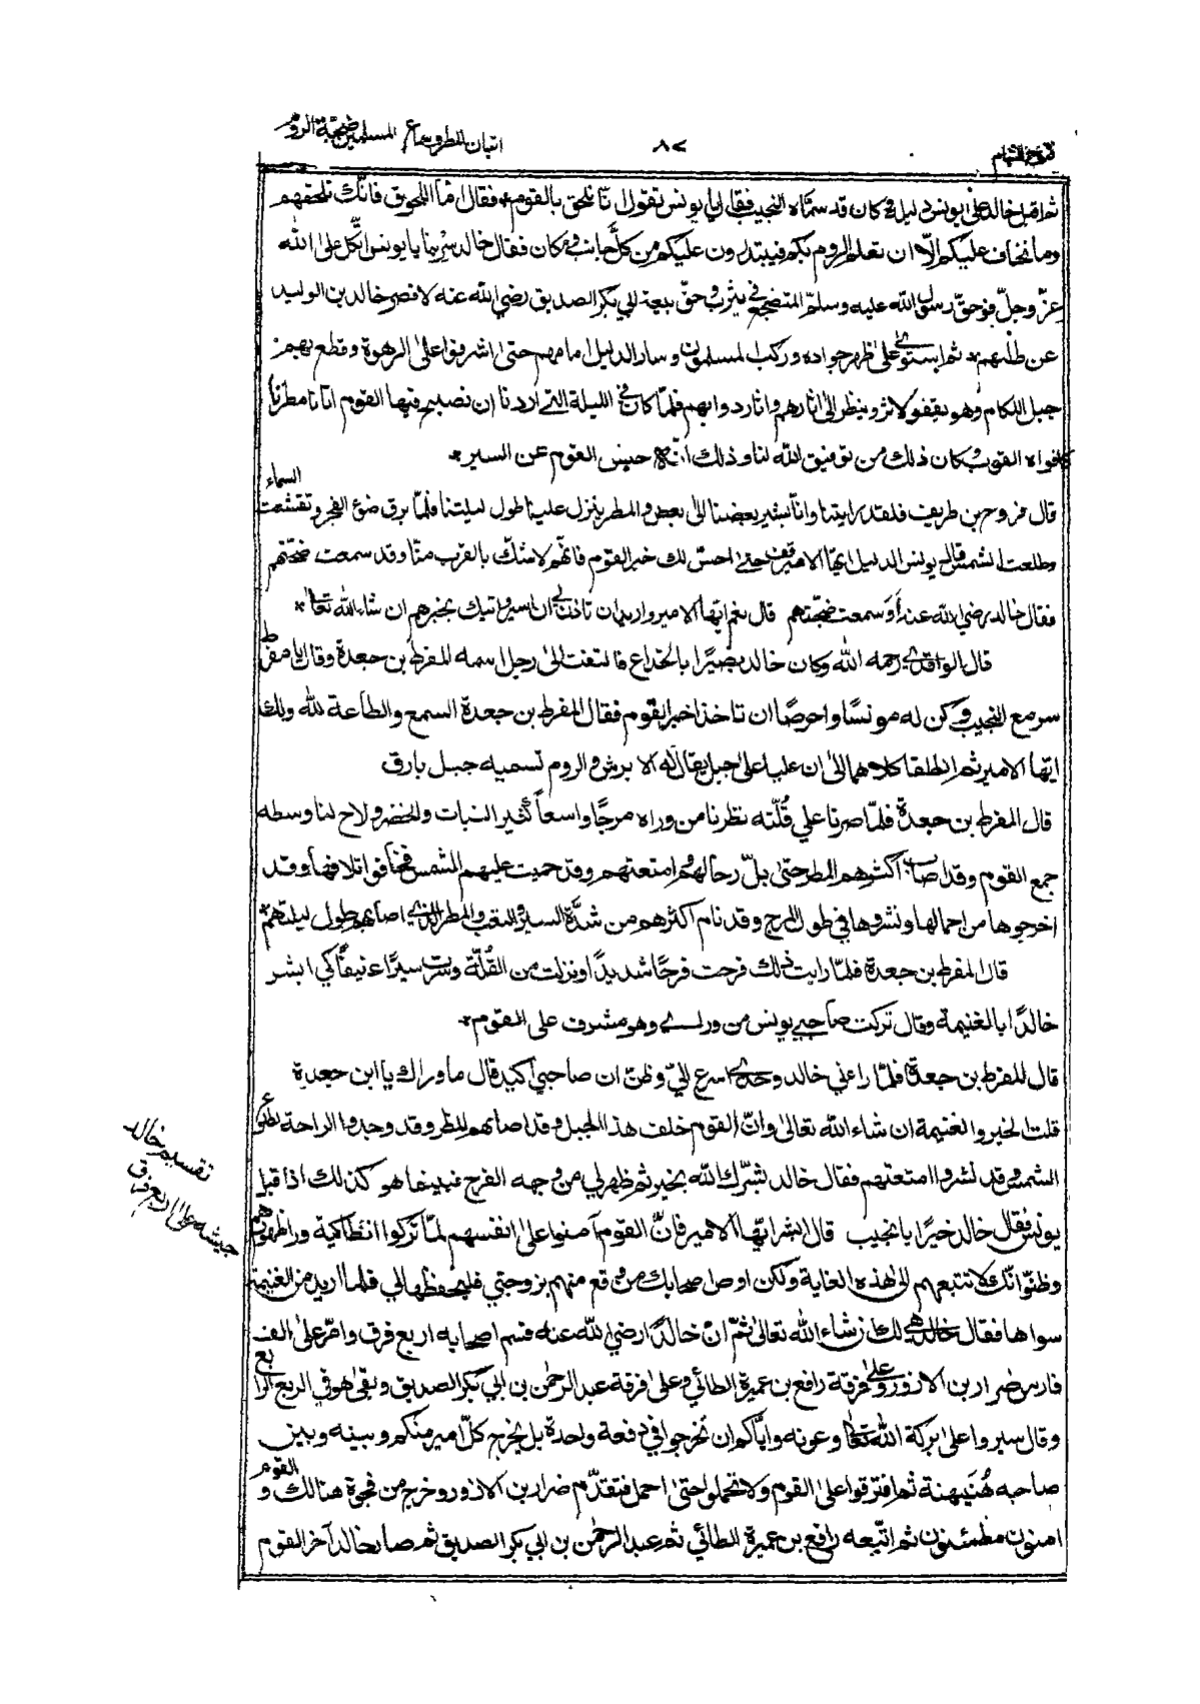 فتوح الشام
٨٧
اتيان المطر وسماع المسلمين ضجة الروم
ثم اقبل خالد على يونس دليله وكان قد سماه النجيب فقال يا يونس تقول انا نلحق بالقوم * فقال اما اللحوق فانك تلحقهم
وما نخاف عليكم الّا ان تعلم الروم بكم فيبتدرون عليكم من كل جانب ومكان فقال خالد سر بنا يا يونس اتكل على الله
عزّ وجلّ فوحق رسول الله عليه وسلم المتضجع في يثرب وحقّ بيعة ابي بكر الصديق رضي الله عنه لا قصر خالد بن الوليد
عن طلبهم * ثم استوى على ظهر جواده وركب المسلمون وسار الدليل امامهم حتى اشرفوا على الرهوة وقطع بهم
جبل اللكام وهو يقفو الاثر وينظر الى اثارهم واثار دوابهم فلمّا كان في الليلة التي اردنا ان نصبح فيها القوم اتانا مطر
كافواه القرب وكان ذلك من توفيق الله لنا وذلك انه حبس القوم عن السير *
قال روح بن طريف فلقد رايتنا وانا يشير بعضنا الى بعض والمطر ينزل علينا طول ليلتنا فلمّا برق ضوء الفجر وتقشعت السماء
وطلعت الشمس قال يونس الدليل ايها الامير قف حتى احسّ لك خبر القوم فانهم لا شك بالقرب منا وقد سمعت ضجّتهم
فقال خالد رضي الله عنه أو سمعت ضجتهم قال نعم ايها الامير واريد ان تاذن لي ان اسير واتيك بخبرهم ان شاء الله تعالى *
قال الواقدي رحمه الله وكان خالد بصيرًا بالخداع فالتفت الى رجل اسمه المفرط بن جعدة وقال يا مفرط
سر مع النجيب وكن له مونسًا واحرصا ان تاخذا خبر القوم فقال المفرط بن جعدة السمع والطاعة لله ولك
ايها الامير ثم انطلقا كلاهما الى ان عليا على جبل يقال له الابرش والروم تسميه جبل بارق
قال المفرط بن جعدة فلمّا صرنا علي قُلّته نظرنا من وراه مرجًا واسعاً كثير النبات والخضر ولاح لنا وسطه
جمع القوم وقد اصاب اكثرهم المطر حتى بلّ رحالهم وامتعتهم وقد حميت عليهم الشمس فخافوا اتلافها وقد
اخرجوها من احمالها ونشروها في طول المرج وقد نام اكثرهم من شدّة السير والتعب والمطر الذي اصابهم طول ليلتهم *
قال المفرط بن جعدة فلمّا رايت ذلك فرحت فرحًا شديدًا ونزلت من القُلّة وسرت سيرًا عنيفًا كي ابشر
خالدًا بالغنيمة وقال تركت صاحبي يونس من وراءي وهو مشرف على القوم *
قال المفرط بن جعدة فلمّا راني خالد وحدي اسرع اليّ وظنّ ان صاحبي اكيد قال ما وراك يا ابن جعدة
قلت الخير والغنيمة ان شاء الله تعالى وانّ القوم خلف هذا الجبل وقد اصابهم المطر وقد وجدوا الراحة بطلوع
الشمس وقد نشروا امتعتهم فقال خالد بشّرك الله بخير ثم ظهر لي من وجهه الفرح فبينما هو كذلك اذا قبل
يونس فقال خالد خيرًا يا نجيب قال ابشر ايها الامير فانّ القوم آمنوا على انفسهم لمّا تركوا انطاكية وراء ظهورهم
وظنّوا انك لا تتبعهم الى هذه الغاية ولكن اوص اصحابك من وقع منهم بزوجتي فليحفظها لي فلما اريد من الغنيمة
سواها فقال خالد هي لك ان شاء الله تعالى ثمّ انّ خالدًا رضي الله عنه قسم اصحابه اربع فرق وامّر على الف
فارس ضرار بن الازور وعلى فرقة رافع بن عميرة الطائي وعلى فرقة عبد الرحمٰن بن ابي بكر الصديق وبقى هو في الربع الرابع
وقال سيروا على بركة الله تعالى وعونه وايّاكم ان تخرجوا في دفعة واحدة بل يخرج كلّ امير منكم وبينه وبين
صاحبه هُنَيهنة ثم افترقوا على القوم ولا تحملوا حتى احمل فتقدّم ضرار بن الازور وخرج من فجوة هنالك والقوم
امنون مطمئنون ثم اتّبعه رافع بن عميرة الطائي ثم عبد الرحمٰن بن ابي بكر الصديق ثم صار خالد آخر القوم
تقسيم خالد
جيشه على اربع فرق